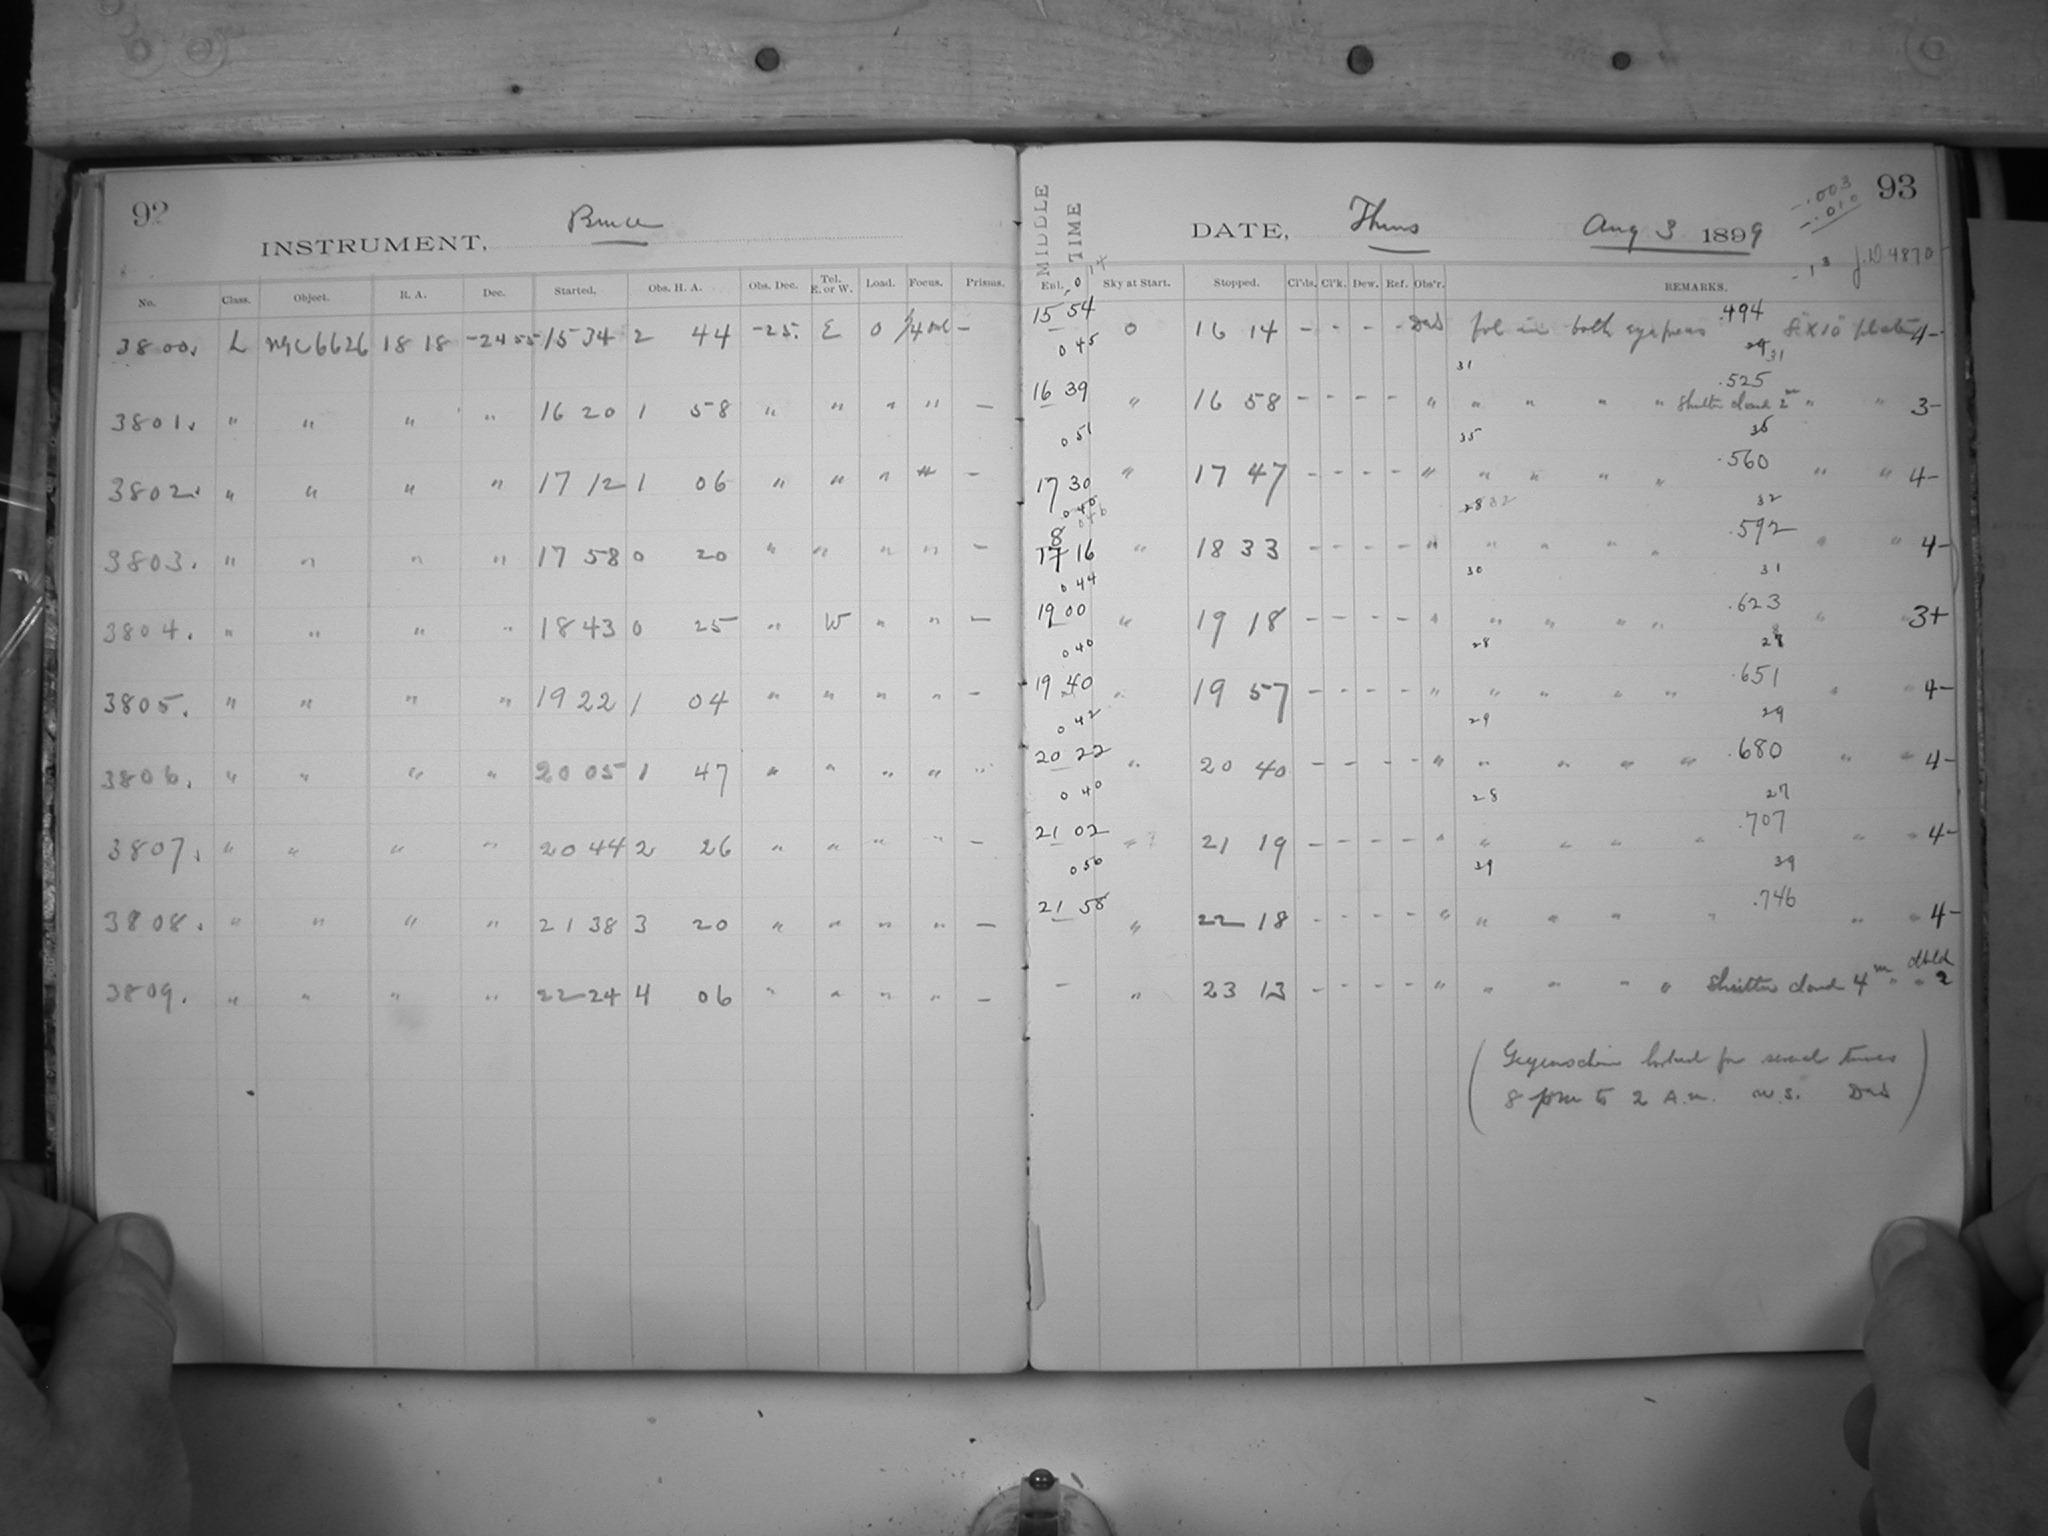 92
Bruce
INSTRUMENT,
No. Class. Object. R. A. Dec. Started. Obs. H. A. Obs. Dec. Tel. E. or W. Load. Focus. Prisms.
3800. L NGC6626 18 18 -24 55 15 34 2 44 -25. E 0 -
3801. " " " " 16 20 1 58 " " " " -
3802. " " " " 17 12 1 06 " " " " -
3803. " " " " 17 58 0 20 " " " " -
3804. " " " " 18 43 0 25 " W " " -
3805. " " " " 19 22 1 04 " " " " -
3806. " " " " 20 05 1 47 " " " " "
3807. " " " " 20 44 2 26 " " " " -
3808. " " " " 21 38 3 20 " " " " -
3809. " " " " 22 24 4 06 " " " " -
93
MIDDLE TIME
DATE, Thurs Aug 3 1899
-.003
-.010
-13 J.D 4870
Exl. Sky at Start. Stopped. Cl'ds. Cl'k. Dew. Ref. Obs'r. REMARKS.
15 54 0 16 14 - - - - fol in both eyepieces .494 8x10 plate 4-
0 45 31 31
16 39 " 16 58 - - - - " " " " " .525 Shutter closed 2m " " 3-
0 51 35 35
17 30 " 17 47 - - - - " " " " " .560 " " 4-
0 40 046 28 32 32
8
17 16 " 18 33 - - - - " " " " " .592 " " 4-
0 44 30 31
19 00 " 19 18 - - - - " " " " " .623 " " 3+
0 40 28 28
19 40 " 19 57 - - - - " " " " " .651 " " 4-
0 42 29 29
20 22 " 20 40 - - - - " " " " " .680 " " 4-
0 40 28 27
21 02 " 21 19 - - - - " " " " " .707 " " 4-
0 56 39 39
21 58 " 22 18 - - - - " " " " " .746 " " 4-
- " 23 13 - - - - " " " " " Shutter closed 4m " " dbld 2
(Gegenschein looked for several times
8 pm to 2 A.m. w.s.)